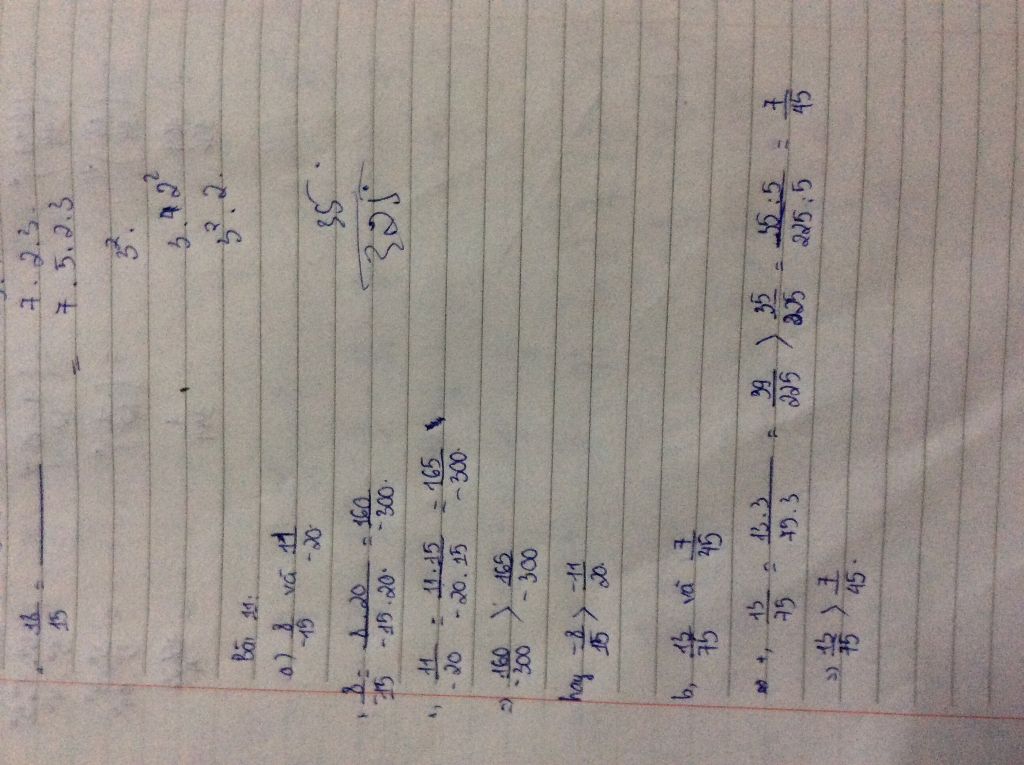 18/15 = 7.2.3 / = 7.5.2.3
3².
3.4 2²
3².2.
Bài 11:
a) 8/-15 và 11/-20
35.
325.
8/-15 = 8.20/-15.20 = 160/-300.
11/-20 = 11.15/-20.15 = 165/-300.
=) 160/-300 > 165/-300
hay -8/15 > -11/20
b, 13/75 và 7/45
+, 13/75 = 13.3/75.3 = 39/225 > 35/225 = 35:5/225:5 = 7/45
=) 13/75 > 7/45.